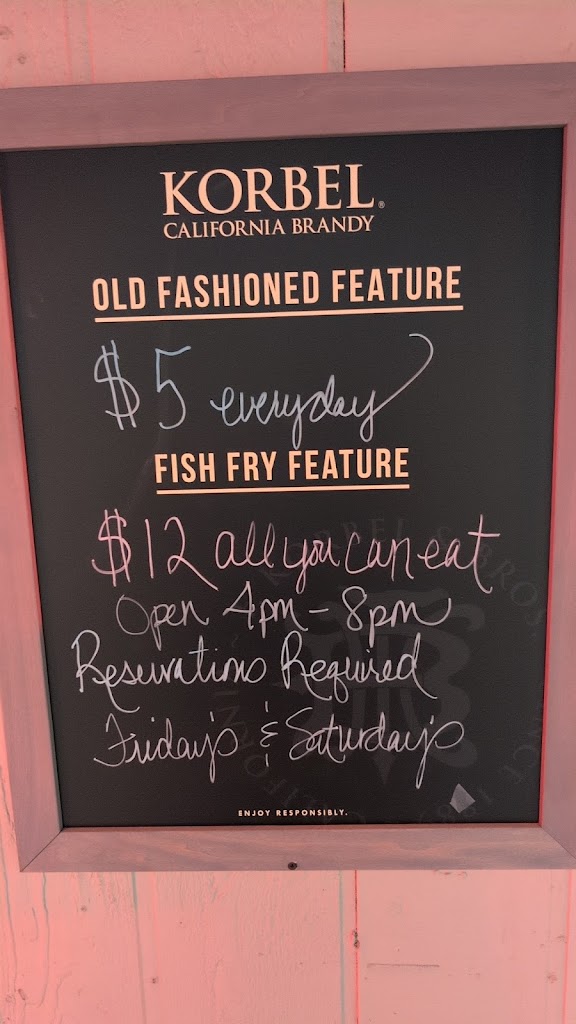 KORBEL®
CALIFORNIA BRANDY
OLD FASHIONED FEATURE
$5 everyday
FISH FRY FEATURE
$12 all you can eat
Open 4pm - 8pm
Reservations Required
Friday's & Saturday's
ENJOY RESPONSIBLY.